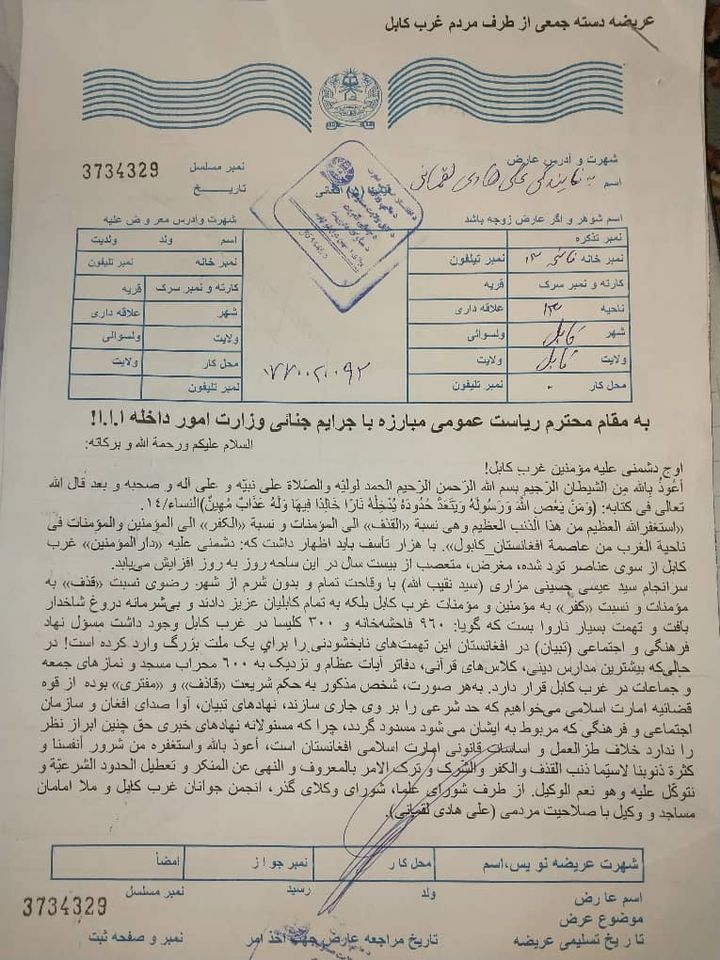 عریضه دسته جمعی از طرف مردم غرب کابل
شهرت و آدرس عارض
نمبر مسلسل 3734329
اسم به نمایندگی علی هادی لقمانی
تاریخ
افغانی
اسم شوهر و اگر عارض زوجه باشد
شهرت وادرس معر و ض علیه
نمبر تذکره
اسم ولد ولدیت
نمبر خانه ناحیه ۱۳ نمبر تیلفون
نمبر خانه نمبر تلیفون
کارته و نمبر سرک قریه
کارته و نمبر سرک قریه
ناحیه ۱۳ علاقه داری
شهر علاقه داری
شهر کابل ولسوالی
ولایت ولسوالی
ولایت کابل ولایت
محل کار ولایت
محل کار - نمبر تلیفون
نمبر تلیفون
۰۷۷۰۰۲۰۰۹۲
به مقام محترم ریاست عمومی مبارزه با جرایم جنائی وزارت امور داخله ا.ا.ا!
السلام علیکم ورحمة الله و برکاته:
اوج دشمنی علیه مؤمنین غرب کابل!
أعُوذُ بِالله مِنَ الشیطان الرّجیم بسم الله الرّحمن الرّحیم الحمد لولیّه والصّلاة علی نبیّه و علی آله و صحبه و بعد قال الله
تعالی فی کتابه: (وَمَنْ یَعْصِ اللهَ وَرَسُولَهُ وَیَتَعَدَّ حُدُودَهُ یُدْخِلْهُ نَارًا خَالِدًا فِیهَا وَلَهُ عَذَابٌ مُهِینٌ)النساء/۱۴.
«استغفرالله العظیم من هذا الذنب العظیم وهی نسبة «القذف» الی المؤمنات و نسبة «الکفر» الی المؤمنین والمؤمنات فی
ناحیة الغرب من عاصمة افغانستان_کابول». با هزار تأسف باید اظهار داشت که: دشمنی علیه «دارالمؤمنین» غرب
کابل از سوی عناصر ترد شده، مغرض، متعصب از بیست سال در این ساحه روز به روز افزایش می‌یابد.
سرانجام سید عیسی حسینی مزاری (سید نقیب الله) با وقاحت تمام و بدون شرم از شهر رضوی نسبت «قذف» به
مؤمنات و نسبت «کفر» به مؤمنین و مؤمنات غرب کابل بلکه به تمام کابلیان عزیز دادند و بی‌شرمانه دروغ شاخدار
بافت و تهمت بسیار ناروا بست که گویا: ۹۶۰ فاحشه‌خانه و ۳۰۰ کلیسا در غرب کابل وجود داشت مسؤل نهاد
فرهنگی و اجتماعی (تبیان) در افغانستان این تهمت‌های نابخشودنی را برای یک ملت بزرگ وارد کرده است! در
حالی‌که بیشترین مدارس دینی، کلاس‌های قرآنی، دفاتر آیات عظام و نزدیک به ۶۰۰ محراب مسجد و نمازهای جمعه
و جماعات در غرب کابل قرار دارد. به‌هر صورت، شخص مذکور به حکم شریعت «قاذف» و «مفتری» بوده از قوه
قضائیه امارت اسلامی می‌خواهیم که حد شرعی را بر وی جاری سازند، نهادهای تبیان، آوا صدای افغان و سازمان
اجتماعی و فرهنگی که مربوط به ایشان می شود مسدود گردد، چرا که مسئولانه نهادهای خبری حق چنین ابراز نظر
را ندارد خلاف طرزالعمل و اساسات قانونی امارت اسلامی افغانستان است، أعوذ بالله واستغفره من شرور أنفسنا و
کثرة ذنوبنا لاسیّما ذنب القذف والکفر والشّرک و ترک الامر بالمعروف و النهی عن المنکر و تعطیل الحدود الشرعیّة و
نتوکّل علیه وهو نعم الوکیل. از طرف شورای علما، شورای وکلای گذر، انجمن جوانان غرب کابل و ملا امامان
مساجد و وکیل با صلاحیت مردمی (علی هادی لقمانی).
شهرت عریضه نو یس،اسم محل کا ر نمبر جو ا ز امضأ
اسم عا رض ولد رسید نمبر مسلسل
موضوع عرض 3734329
تا ر یخ تسلیمی عریضه تاریخ مراجعه عارض جهت اخذ امر نمبر و صفحه ثبت